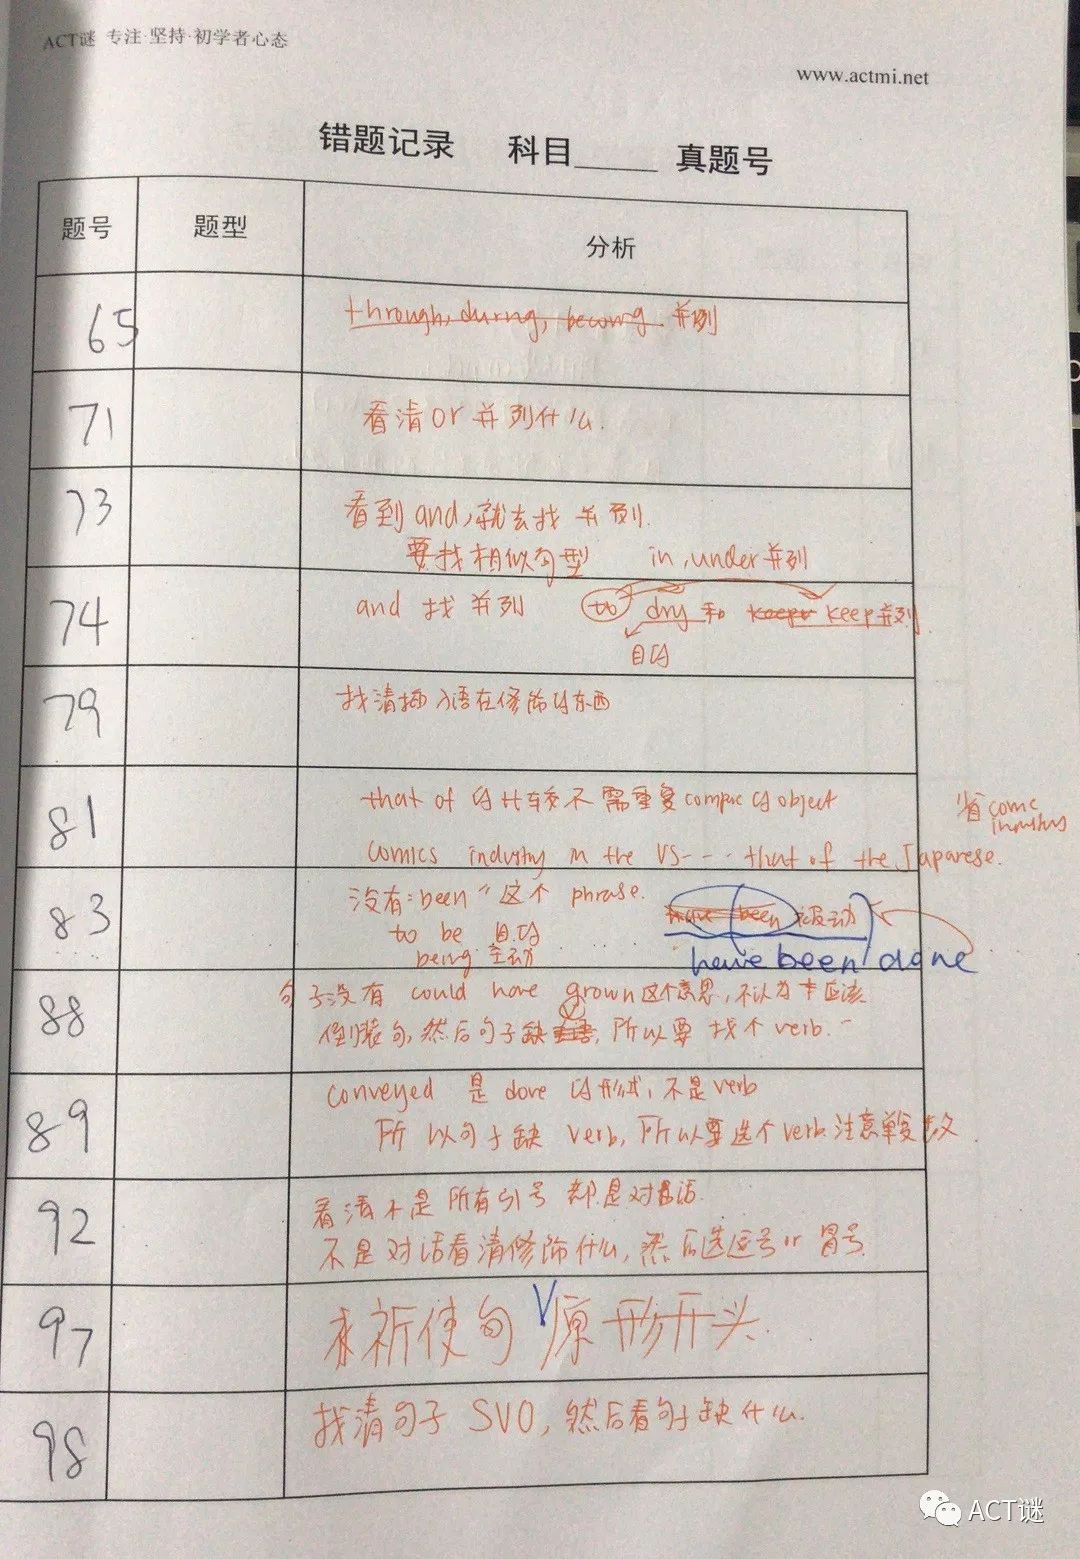 ACT谜 专注·坚持·初学者心态
www.actmi.net
错题记录 科目_____ 真题号
题号 题型 分析
65 through, during, becoming 并列
71 看清or并列什么.
73 看到and,就去找并列.
要找相似句型 in,under并列
74 and 找并列 to dry 和 keep keep并列
目的
79 找清插入语在修饰的东西
81 that of 的比较不需重复compare的object
省comic industry
comics industry in the US --- that of the Japanese.
83 没有"been"这个 phrase.
have been 被动
to be 目的
being 主动
have been done
88 句子没有 could have grown这个意思,不认为
倒装句,然后句子缺 V,所以要找个verb.
89 conveyed 是done的形式,不是verb
所以句子缺 verb,所以要选个verb.注意单复数
92 看清不是所有引号都是对话.
不是对话看清修饰什么,然后选逗号or冒号
97 祈使句 V原形开头.
98 找清句子 SVO,然后看句子缺什么.
ACT谜